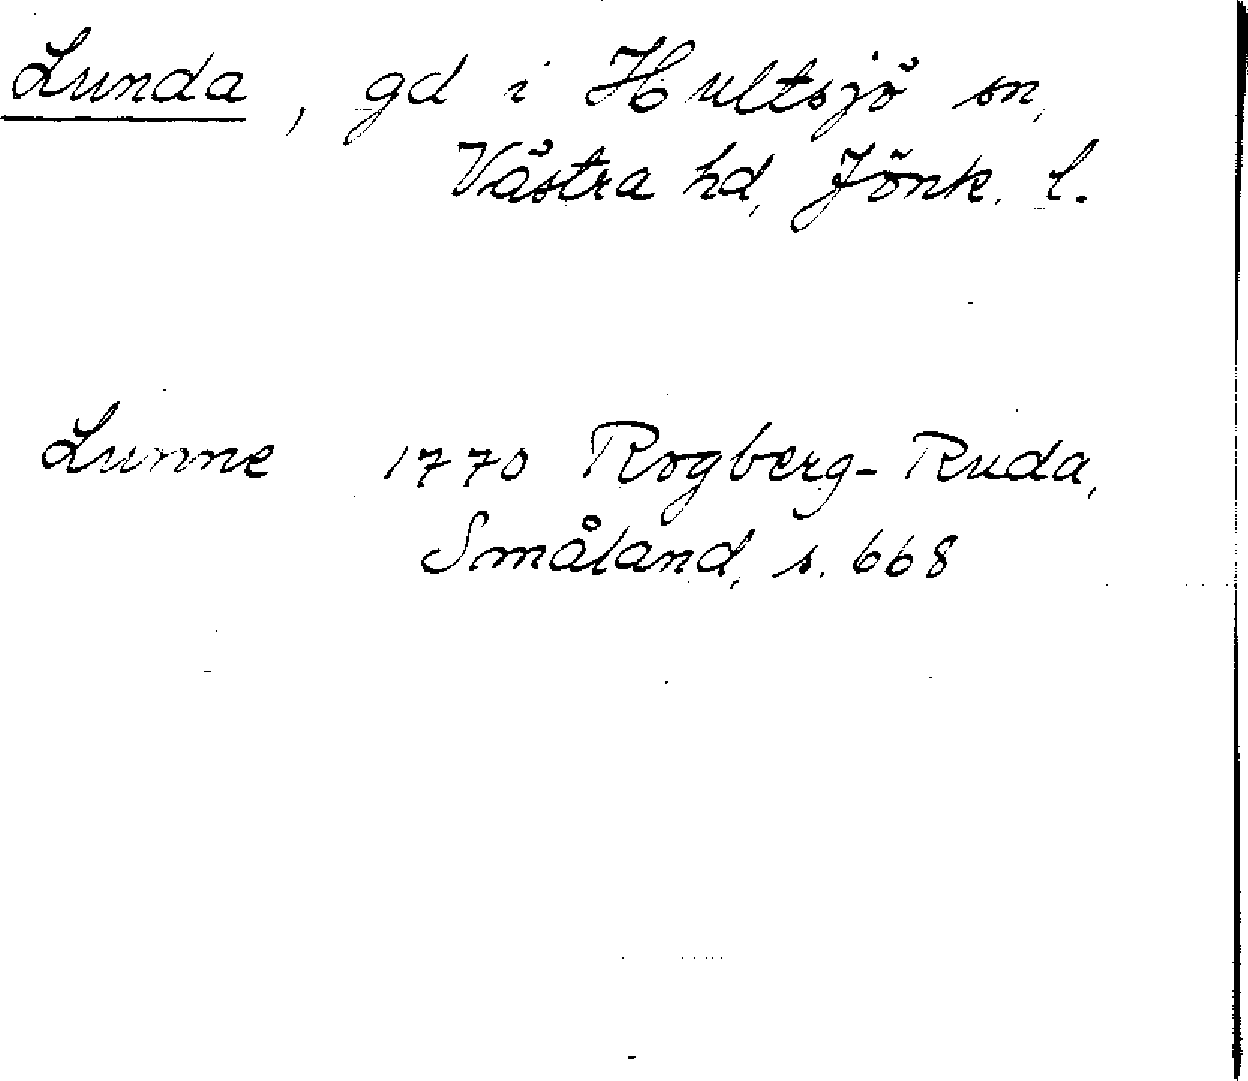 Lunda, gd i Hultsjö sn,
Västra hd, Jönk. l.
Lunne 1770 Rogberg-Ruda,
Småland, s. 668